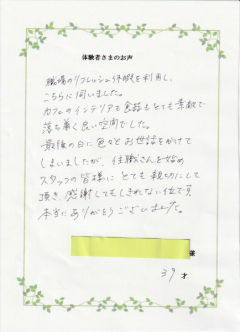 体験者さまのお声
職場のリフレッシュ休暇を利用し、
こちらに伺いました。
カフェのインテリアも食器もとても素敵で
落ち着く良い空間でした。
最後の日に色々とお世話をかけて
しまいましたが、住職さんを始め
スタッフの皆様にとても親切にして
頂き、感謝してもしきれない位です。
本当にありがとうございました。
様
39才